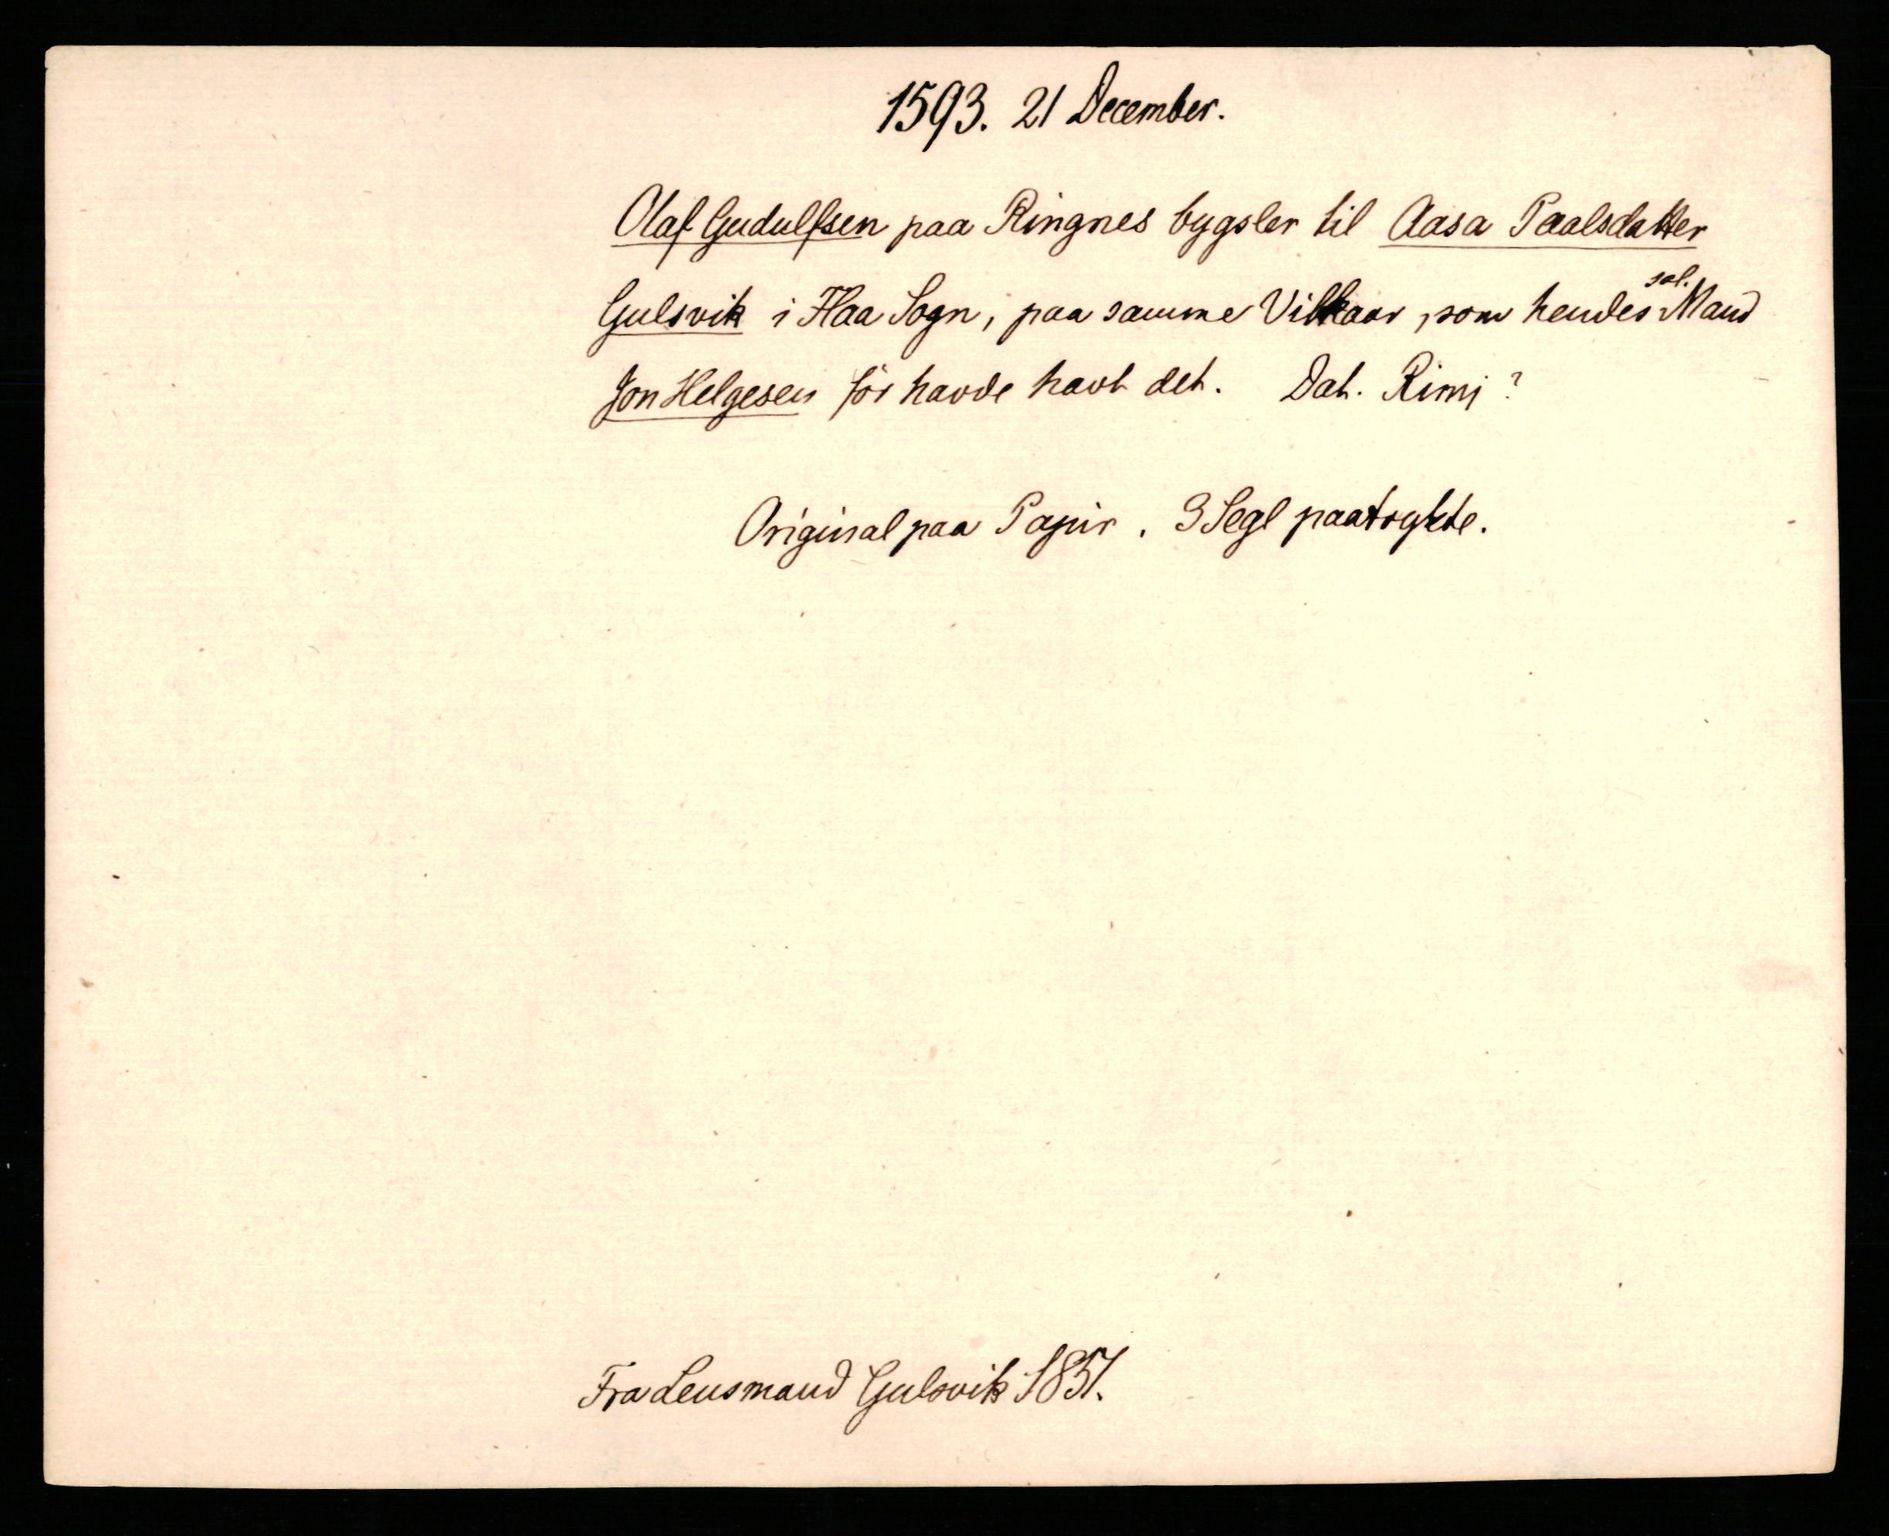 1593. 21 December.
Olaf Gudulfsen paa Ringnes bygsler til Aasa Paalsdatter
Gulsvik i Flaa Sogn, paa samme Vilkaar, som hendes sal. Mand
Jon Helgesen før havde havt det. Dat. Rimj?
Original paa Papir. 3 Segl paatrykte.
Fra Lensmand Gulsvik 1857.